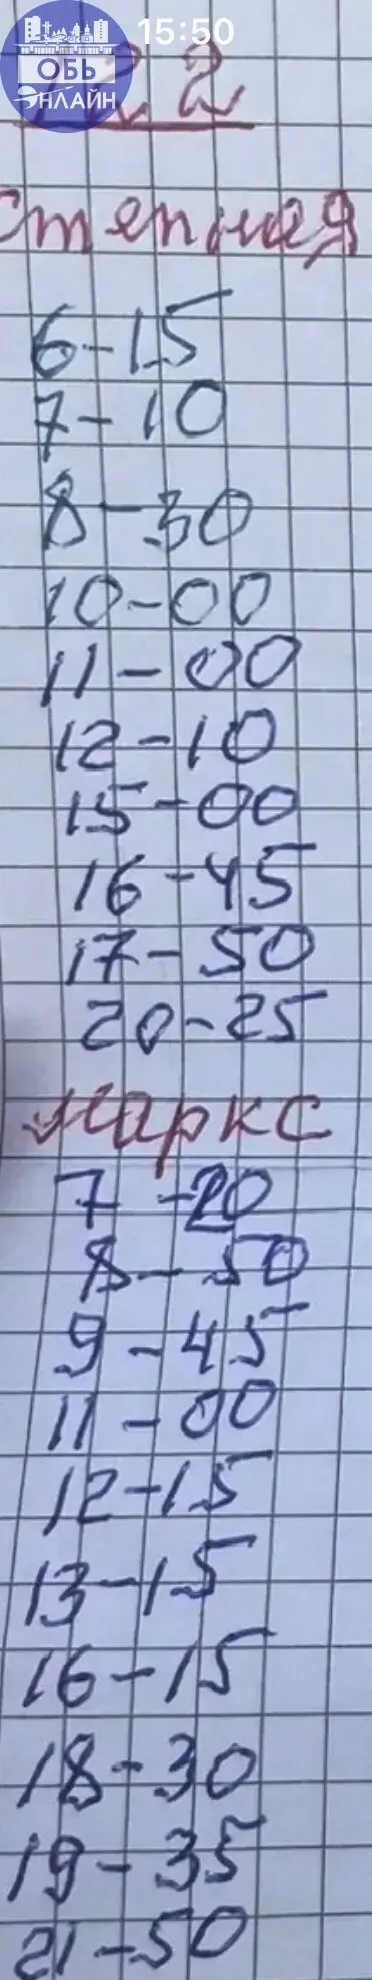 15:50
ОБЬ
ОНЛАЙН
2
Степная
6-15
7-10
8-30
10-00
11-00
12-10
15-00
16-45
17-50
20-25
Маркс
7-20
8-50
9-45
11-00
12-15
13-15
16-15
18-30
19-35
21-50